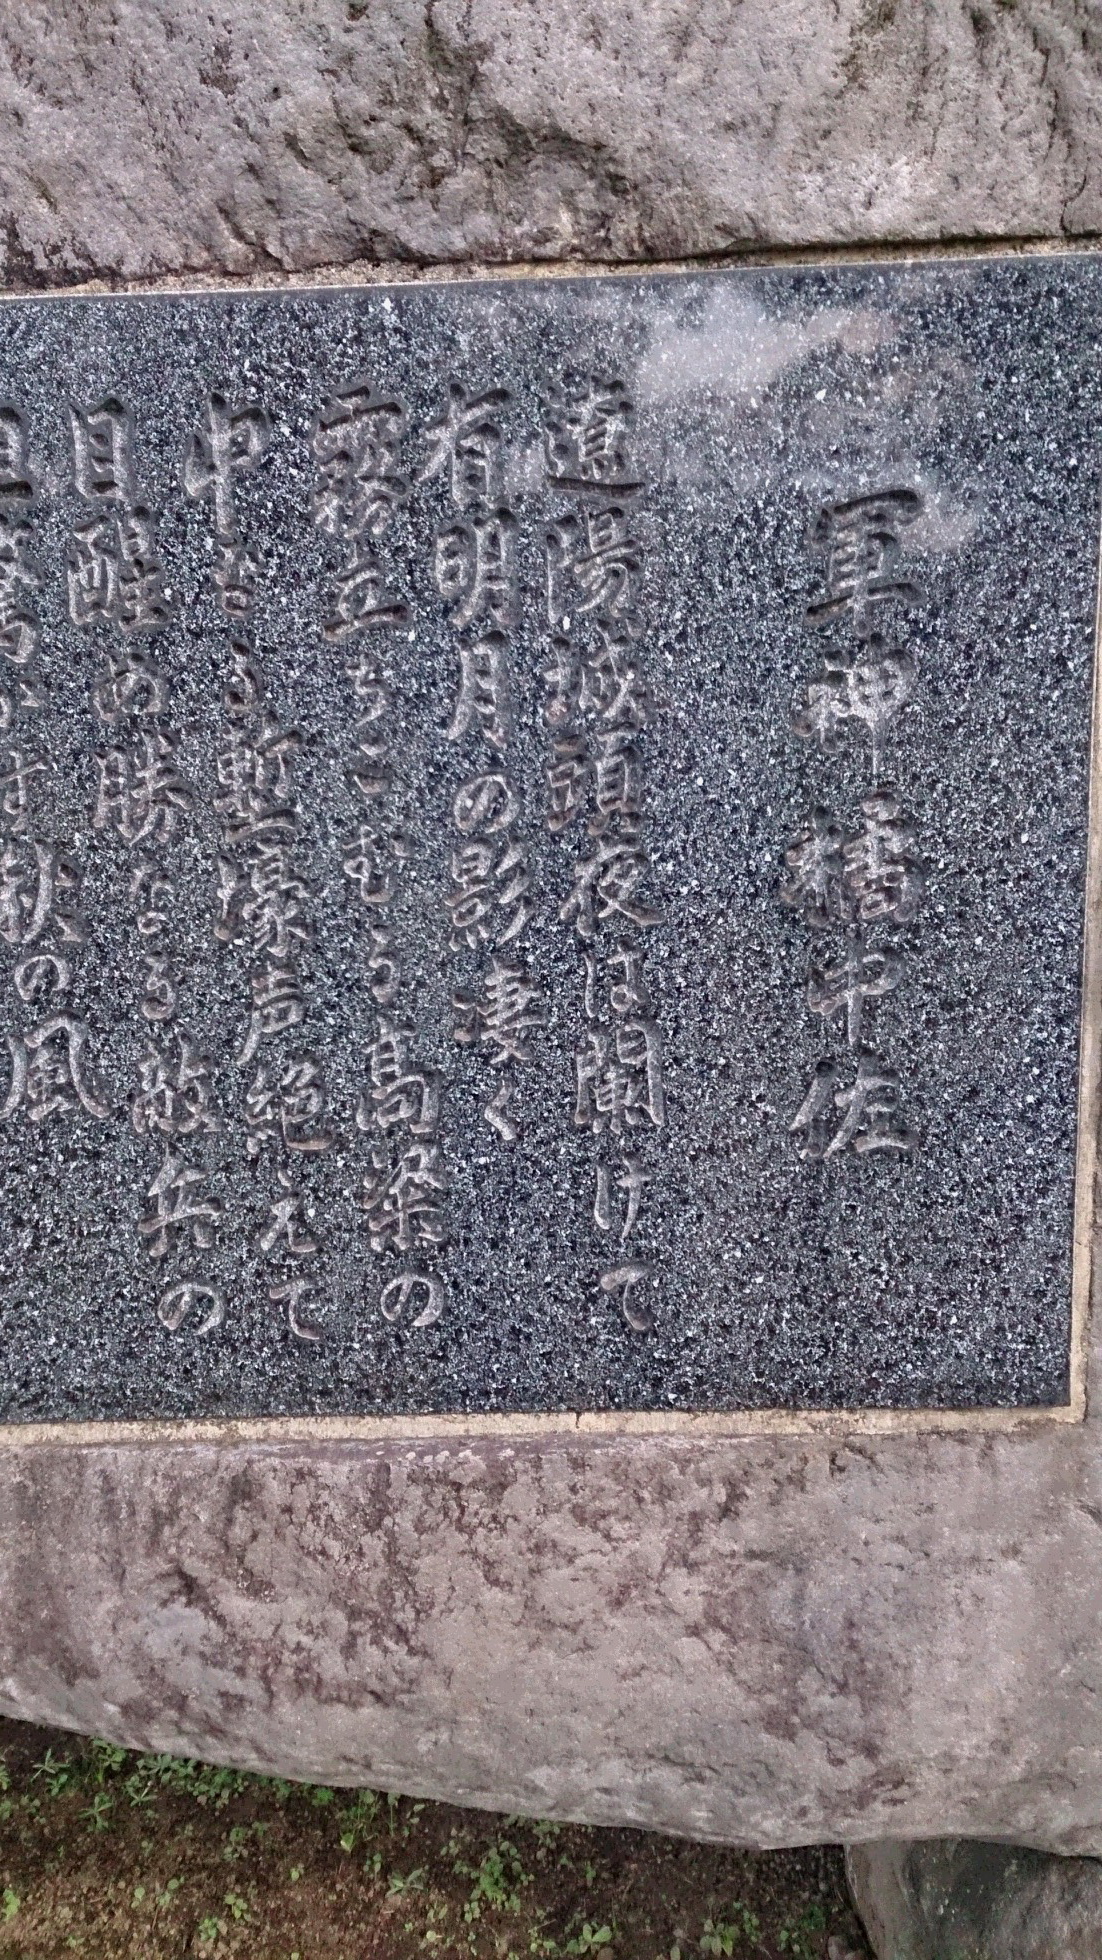 軍神橘中佐
遼陽城頭夜は闌けて
有明月の影凄く
霧立ちこむる高梁の
中なる塹壕声絶えて
目醒め勝なる敵兵の
胆驚かす秋の風